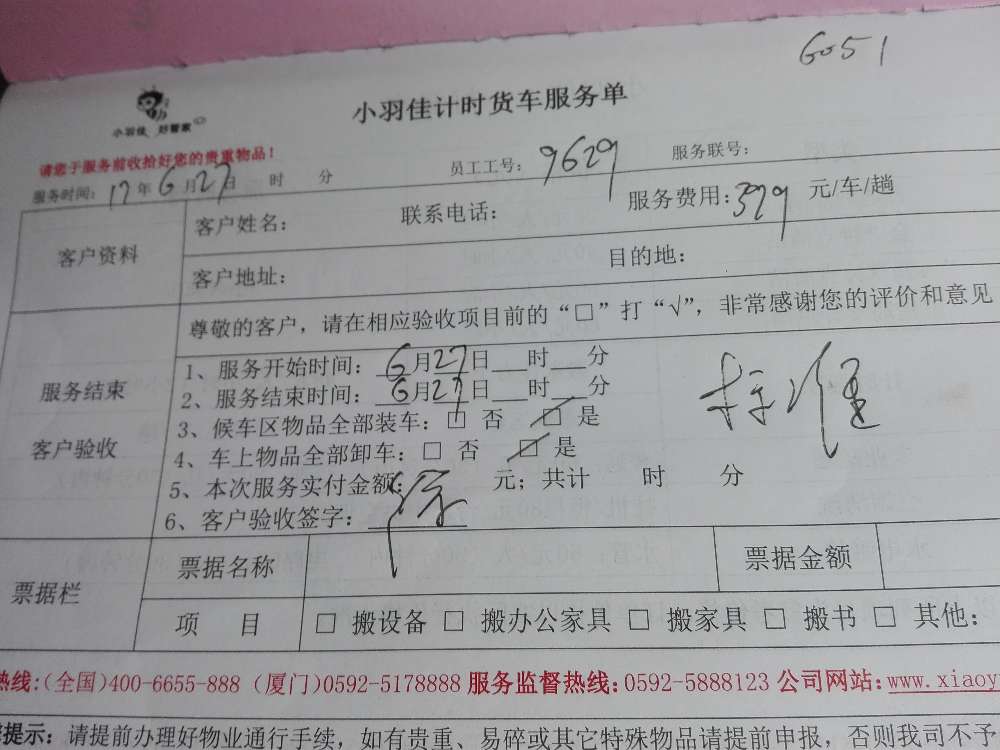 6051
小羽佳计时货车服务单
小羽佳 好管家
请您于服务前收拾好您的贵重物品！
服务时间：17年6月27日 时 分 员工工号：9629 服务联号：
客户资料
客户姓名： 联系电话： 服务费用：379 元/车/趟
客户地址： 目的地：
服务结束
客户验收
尊敬的客户，请在相应验收项目前的“□”打“√”，非常感谢您的评价和意见
1、服务开始时间：6月27日___时___分
2、服务结束时间：6月27日___时___分
3、候车区物品全部装车：□ 否 ☑ 是
4、车上物品全部卸车：□ 否 ☑ 是
5、本次服务实付金额： 元；共计 时 分
6、客户验收签字：
标准
票据栏
票据名称 票据金额
项 目 □ 搬设备 □ 搬办公家具 □ 搬家具 □ 搬书 □ 其他：
热线：(全国)400-6655-888 (厦门)0592-5178888 服务监督热线：0592-5888123 公司网站：www.xiaoy
提示：请提前办理好物业通行手续，如有贵重、易碎或其它特殊物品请提前申报，否则我司不予